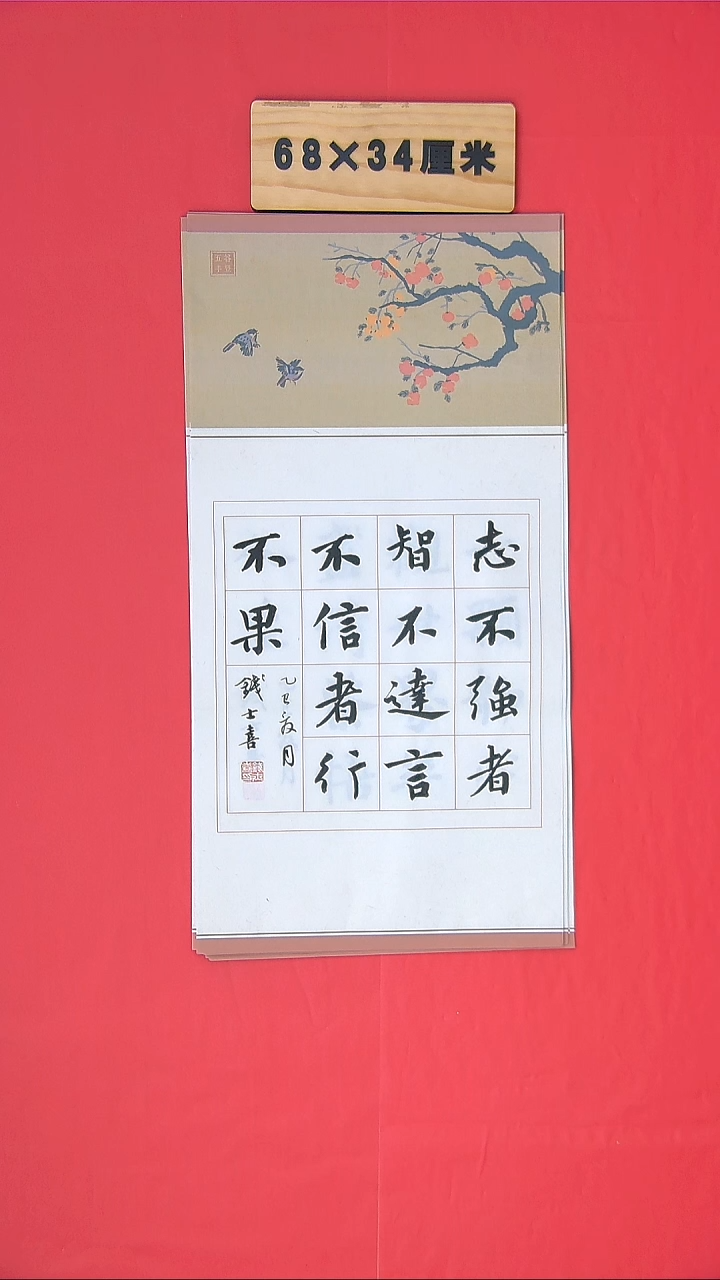 68×34厘米
五谷丰登
志不強者
智不達言
不信者行
不果
乙巳
月
錢士喜